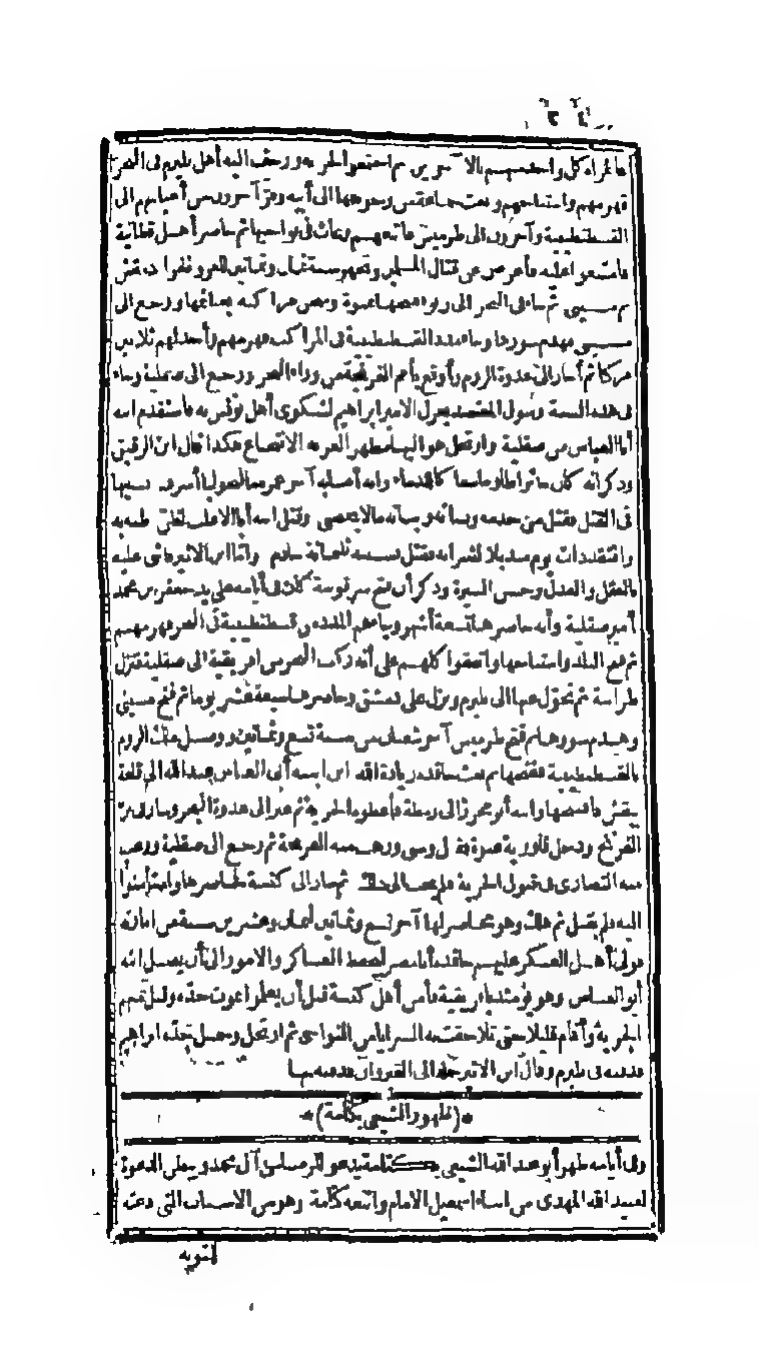 كل واحد منهم بالآخرين ثم اجتمعوا لحربه وزحف اليه أهل بلرم في البحر
فهزمهم واستباحهم وبعث جماعة من وجوهها الى أبيه وفرّ آخرون من أعيانهم الى
القسطنطينية وآخرون الى طرميس فاتبعهم وعاث في نواحيها ثم حاصر أهل قطانية
فامتنعوا عليه فأعرض عن قتال المسلمين وتجهز سنة ثمان وثمانين للغزو دمقش
ثم مسيني ثم جاء في البحر الى ريو ففتحها عنوة وشحن مراكبه بغنائمها ورجع الى
مسيني فهدم سورها وجاء مدد القسطنطينية في المراكب فهزمهم وأخذ لهم ثلاثين
مركبا ثم أجاز الى عدوة الروم وأوقع بأمم الفرنجة من وراء البحر ورجع الى صقلية وجاء
في هذه السنة رسول المعتضد بعزل الامير ابراهيم لشكوى أهل تونس به فاستقدم ابنه
أبا العباس من صقلية وارتحل هو اليها مظهرا لغربة الانتجاع هكذا قال ابن الرقيق
وذكر أنه كان جائرا ظلوما سفاكا للدماء وانه أصابه آخر عمره ماليخوليا أسرف بسببها
في القتل فقتل من خدمه ونسائه وبناته ما لا يحصى وقتل ابنه أبا الاغلب لظنّ ظنه به
وافتقد ذات يوم منديلا لشرابه فقتل بسببه ثلثمائة خادم وأمّا ابن الاثير فأثنى عليه
بالعقل والعدل وحسن السيرة وذكر أن فتح سرقوسة كان في أيامه على يد جعفر بن محمد
أمير صقلية وأنه حاصرها تسعة أشهر وجاءهم المدد من قسطنطينية في البحر فهزمهم
ثم فتح البلد واستباحها واتفقوا كلهم على أنه ركب البحر من افريقية الى صقلية فنزل
طرابنة ثم تحوّل عنها الى بلرم ونزل على دمشق وحاصرها سبعة عشر يوما ثم فتح مسيني
وهدم سورها ثم فتح طرميس آخر شعبان من سنة تسع وثمانين ووصل ملك الروم
بالقسطنطينية ففتحها ثم بعث حافده زيادة الله ابن ابنه أبي العباس عبد الله الى قلعة
بيقش فافتتحها وابنه أبو محرز الى رمطة فأعطوه الجزية ثم عبر الى عدوة البحر وسار في برّ
الفرنج ودخل قلورية عنوة فقتل وسبى ورهب منه الفرنجة ثم رجع الى صقلية ورغب
منه النصارى في قبول الجزية فلم يجب الى ذلك ثم سار الى كنسة فحاصرها واستأمنوا
اليه فلم يقبل ثم هلك وهو محاصر لها آخر تسع وثمانين لثمان وعشرين سنة من امارته
فولى أهل العسكر عليهم حافده أبا مضر ليحفظ العساكر والامور الى أن يصل ابنه
أبو العباس وهو يومئذ بافريقية فأمن أهل كنسة قبل أن يعلموا بموت جدّه وقبل منهم
الجزية وأقام قليلا حتى تلاحقت به السرايا من النواحي ثم ارتحل وحمل جدّه ابراهيم
فدفنه في بلرم وقال ابن الاثير حمله الى القيروان فدفنه بها
*(ظهور الشيعي بكتامة)*
وفي أيامه ظهر أبو عبد الله الشيعي بكتامة يدعو للرضا من آل محمد ويبطن الدعوة
لعبيد الله المهدي من ابناء اسمعيل الامام واتبعه كتامة وهو من الاسباب التي دعته
للتوبة